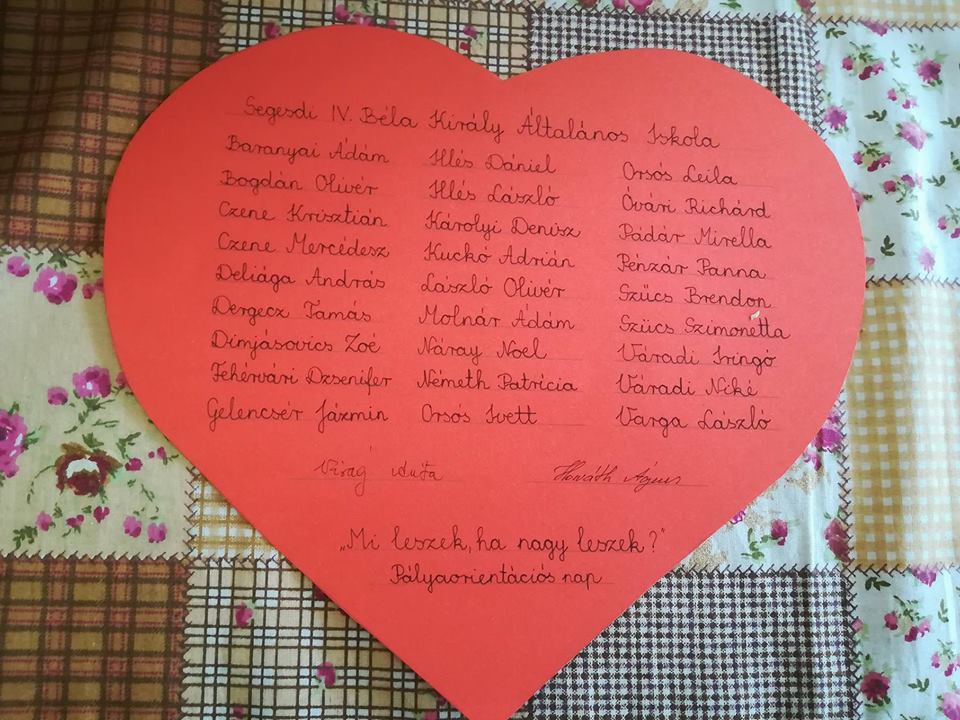 Segesdi IV. Béla Király Általános Iskola
Baranyai Ádám
Bogdán Olivér
Czene Krisztián
Czene Mercédesz
Deliága András
Dergecz Tamás
Dimjásovics Zoé
Fehérvári Dzsenifer
Gelencsér Jázmin
Illés Dániel
Illés László
Károlyi Denisz
Kuckó Adrián
László Olivér
Molnár Ádám
Náray Noel
Németh Patrícia
Orsós Ivett
Orsós Leila
Óvári Richárd
Pádár Mirella
Pénzár Panna
Szücs Brendon
Szücs Szimonetta
Váradi Iringó
Váradi Niké
Varga László
Virág Anita
Horváth Ágnes
„Mi leszek, ha nagy leszek?"
Pályaorientációs nap